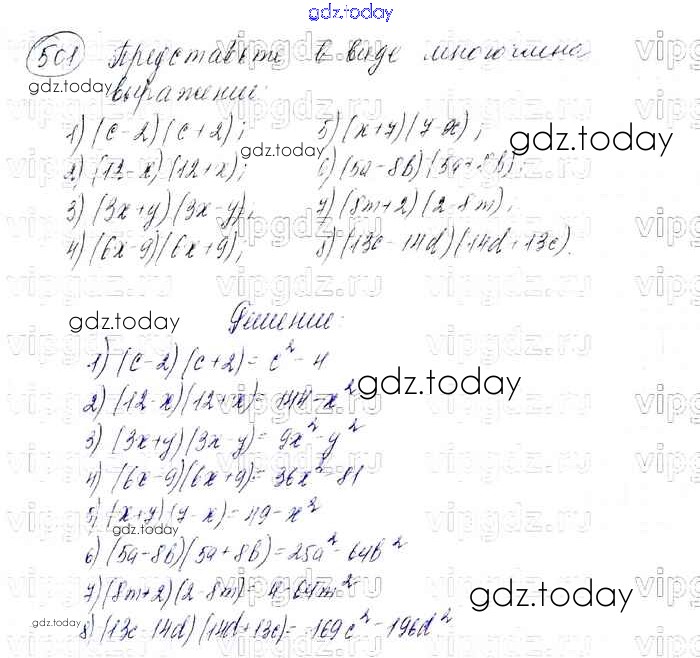 gdz.today
501 Представьте в виде многочлена
gdz.today
выражение:
1) (c-2)(c+2); 5) (x+7)(7-x);
gdz.today gdz.today
2) (12-x)(12+x); 6) (5a-8b)(5a+8b);
3) (3x+y)(3x-y); 7) (8m+2)(2-8m);
4) (6x-9)(6x+9); 8) (13c-14d)(14d+13c).
gdz.today
Решение:
1) (c-2)(c+2) = c² - 4
gdz.today
2) (12-x)(12+x) = 144 - x²
3) (3x+y)(3x-y) = 9x² - y²
4) (6x-9)(6x+9) = 36x² - 81
5) (x+7)(7-x) = 49 - x²
gdz.today
6) (5a-8b)(5a+8b) = 25a² - 64b²
7) (8m+2)(2-8m) = 4 - 64m²
gdz.today gdz.today
8) (13c-14d)(14d+13c) = 169c² - 196d²
vipgdz.ru